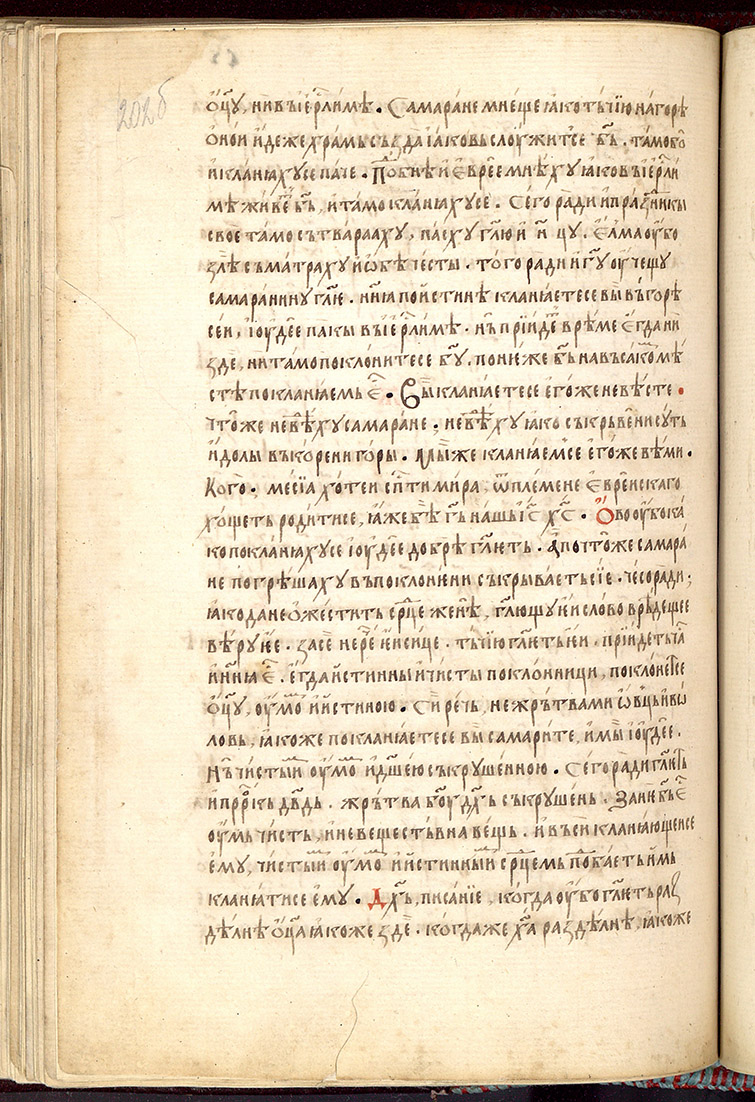 202б
ѻ҃цꙋ, ни въ і҆ер҇лимѣ . Самарꙗне мнеще ꙗко тъчїю на горѣ
ѻ҆нои и҆деже храмь създа і҆аковь слꙋжит се б҃ь . тамо бо
и кланꙗхꙋ се паче . Под҇бнѣ и҆ є҆вреє мнѣхꙋ ꙗко въ і҆ер҇ли
мѣ живеть б҃ь, и҆ тамо кланꙗхꙋ се . Сего ради и празⷣникы
свое тамо сътвараахꙋ, пасхꙋ гл҃ю и҆ н҃ цꙋ . Є҆лма оу҆бо
злѣ съматрахꙋ и҆ ѡ҆бѣ чести . того ради и г҃ꙋ оу҆чещꙋ
самаранинꙋ гл҃ю . нн҃ꙗ по и҆стинѣ кланꙗете се вы въ горѣ
сеи, і҆ꙋдее пакы въ і҆ер҇лимѣ . нь прїидеть врѣме є҆гда ни
зде, ни тамо поклоните се б҃ꙋ . понеже б҃ь на въсакомь мѣ
стѣ покланꙗемь є҇ . Вы кланꙗете се є҆гоже не вѣсте .
Что же не вѣхꙋ самарꙗне ; не вѣхꙋ ꙗко съкрьвени сꙋть
и҆доли въ корени горы . Мы же кланꙗем се є҆гоже вѣми .
Кого ; месїа хотеи сп҃ти мира ; ѿ племене є҆вреискаго
хощеть родити се, ꙗже бѣ г҃ь нашь і҆с҃ х҃с . Ѻво оу҆бо ка
ко покланꙗхꙋ се і҆ꙋдее добрѣ гл҃еть . А почто же самарꙗ
не погрѣшахꙋ въ поклонени съкрываеть сїе . чесо ради ;
ꙗко да не ѡ҆жестить ср҃це женѣ, гл҃ющꙋ и҆ слово врѣдещее
вѣрꙋ и҆є . за се не рече и҆нсице . тъчїю гл҃еть и҆ . прїидеть ча҇
и нн҃ꙗ є҇ . є҆гда и҆стинныи и чисты поклонници, поклонет се
ѻ҃цꙋ, оу҆момь и҆ и҆стиною . Сирѣчь, не жрътвами ѡ҆вць и вѡ
ловь, ꙗкоже покланꙗете се вы самарите, и мы і҆ꙋдее .
Нь чистыимь оу҆момь и д҃шею съкрꙋшенною . Сего ради гл҃еть
и пр҃рокь дв҃дь . жрътва б҃ꙋ д҃хь съкрꙋшень . Зане б҃ь є҇
оу҆мь чисть, и невещестьвна вещь . и въси кланꙗющеи се
є҆мꙋ, чистыимь оу҆момь и҆ и҆стинныимь ср҃цемь под҇баеть и҆мь
кланꙗти се є҆мꙋ . Д҃хь, писанїе, когда оу҆бо гл҃еть раз
дѣлнѣ ѻ҃ца ꙗкоже зде . когда же х҃а раздѣлнѣ, ꙗкоже